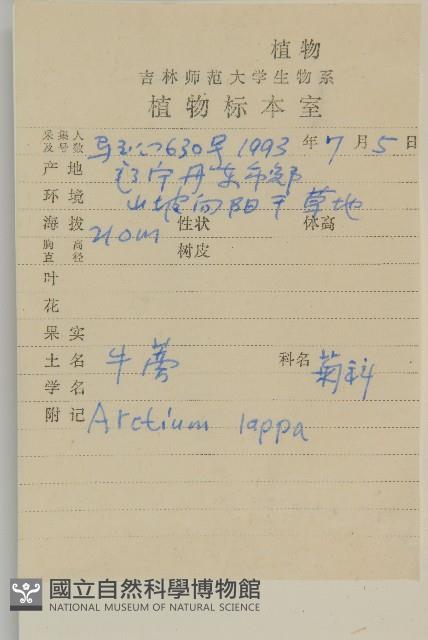 植物
吉林师范大学生物系
植物标本室
采集人及号数 马玉心630号 1993 年 7 月 5 日
产地 辽宁丹东市郊
环境 山坡向阳干草地
海拔 210m 性状 体高
胸高直径 树皮
叶
花
果实
土名 牛蒡 科名 菊科
学名
附记 Arctium lappa
國立自然科學博物館
NATIONAL MUSEUM OF NATURAL SCIENCE